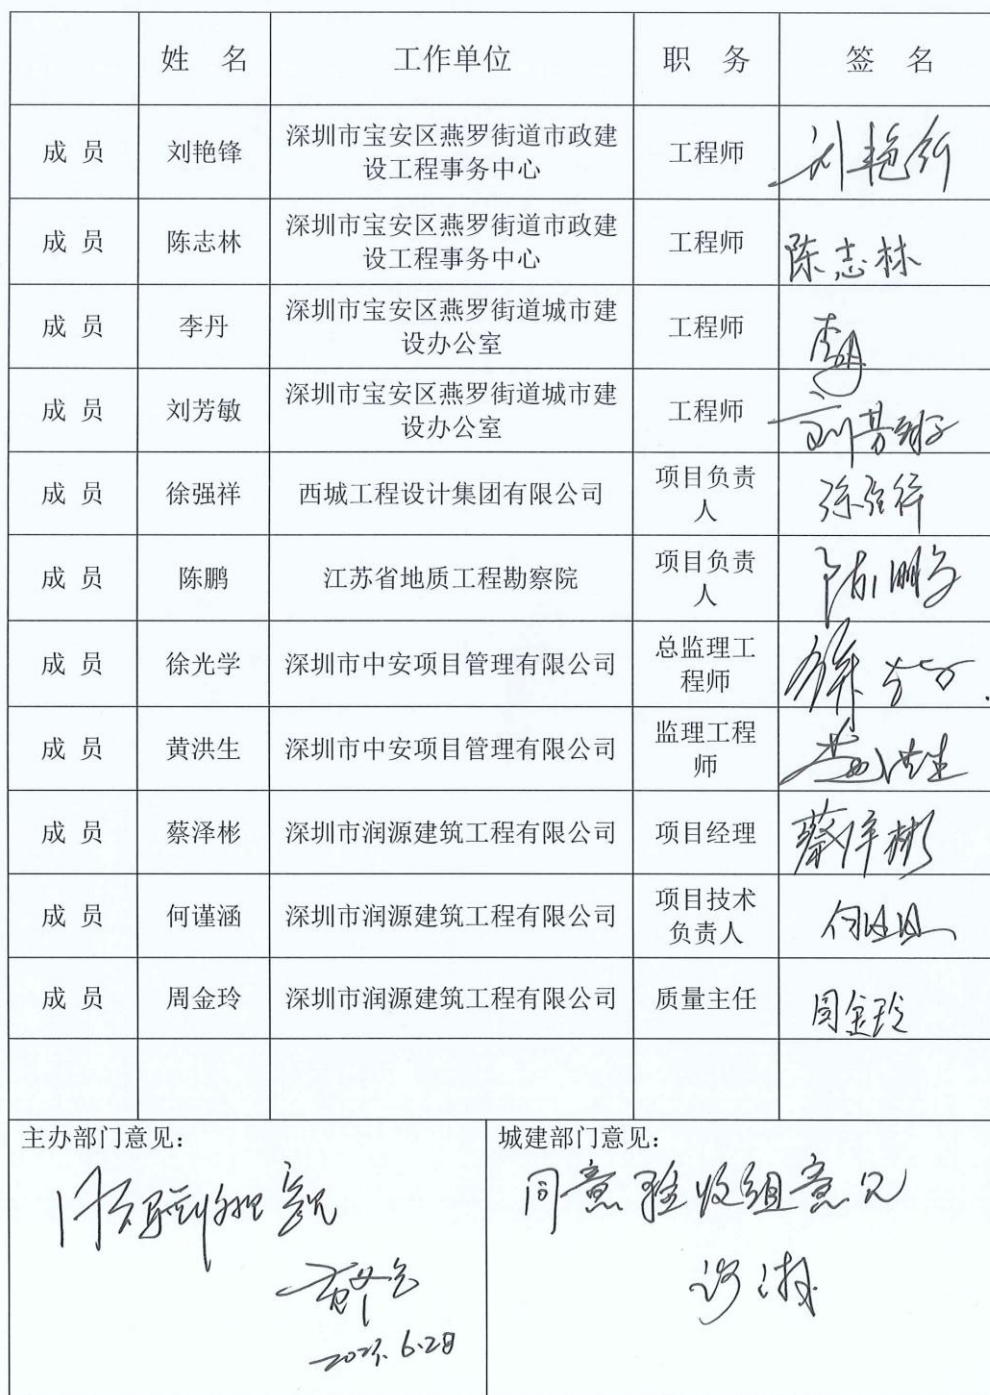 姓 名 工作单位 职 务 签 名
成 员 刘艳锋 深圳市宝安区燕罗街道市政建 工程师 刘艳锋
设工程事务中心
成 员 陈志林 深圳市宝安区燕罗街道市政建 工程师 陈志林
设工程事务中心
成 员 李丹 深圳市宝安区燕罗街道城市建 工程师 李丹
设办公室
成 员 刘芳敏 深圳市宝安区燕罗街道城市建 工程师 刘芳敏
设办公室
成 员 徐强祥 西城工程设计集团有限公司 项目负责 徐强祥
人
成 员 陈鹏 江苏省地质工程勘察院 项目负责 陈鹏
人
成 员 徐光学 深圳市中安项目管理有限公司 总监理工 徐光学
程师
成 员 黄洪生 深圳市中安项目管理有限公司 监理工程 黄洪生
师
成 员 蔡泽彬 深圳市润源建筑工程有限公司 项目经理 蔡泽彬
成 员 何谨涵 深圳市润源建筑工程有限公司 项目技术 何谨涵
负责人
成 员 周金玲 深圳市润源建筑工程有限公司 质量主任 周金玲
主办部门意见：
同意验收组意见
6.28
城建部门意见：
同意验收组意见